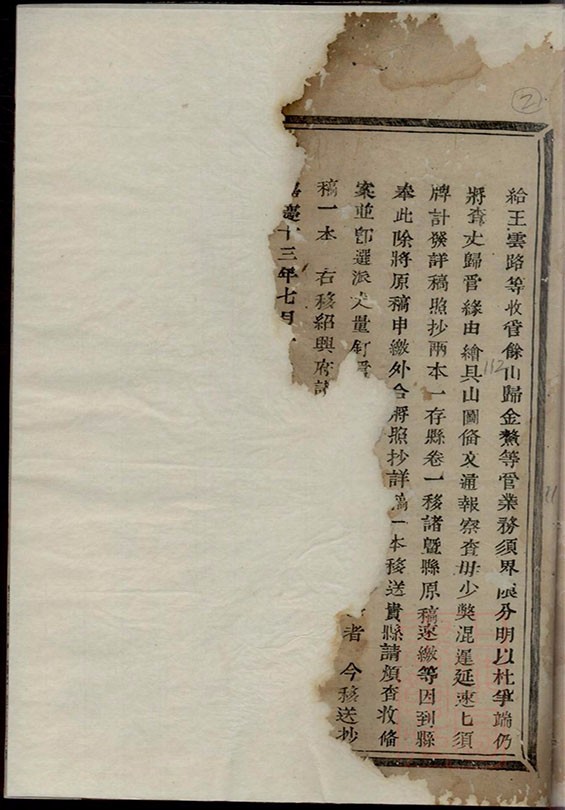 給王雲路等收管餘山歸金鰲等管業務須界限分明以杜爭端仍
將查丈歸管緣由繪具山圖俻文通報察查毋少獘混遲延速七須
牌計發詳稿照抄兩本一存縣卷一移諸暨縣原稿速繳等因到縣
奉此除將原稿申繳外合將照抄詳稿一本移送貴縣請煩查收俻
案並卽選派丈量釘
者 今移送抄
稿一本 右移紹興府諸
慶十三年七月
2
112